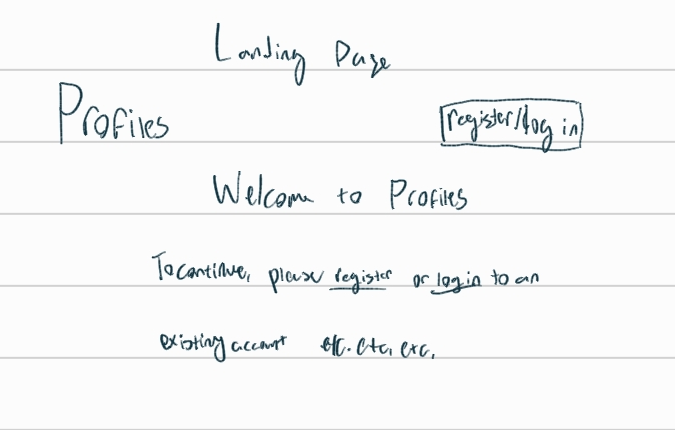 Landing Page
Profiles register/log in
Welcome to Profiles
To continue, please register or login to an
existing account etc. etc, etc,